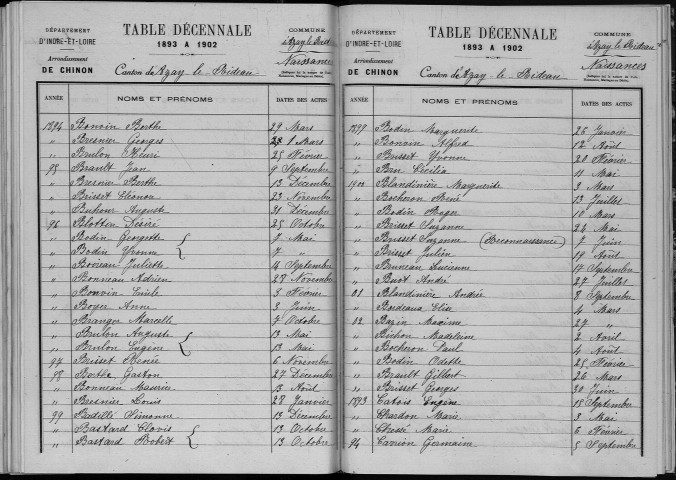 DÉPARTEMENT
D'INDRE-ET-LOIRE
Arrondissement
DE CHINON
TABLE DÉCENNALE
1893 A 1902
Canton d'Azay-le-Rideau
COMMUNE
d'Azay le Rideau
Naissances
ANNÉE NOMS ET PRÉNOMS DATES DES ACTES
1894 Bonvin Berthe 29 Mars
„ Bresnier Georges 1 Mars
„ Brulon Henri 25 Février
95 Brault Jean 9 Septembre
„ Bresnier Berthe 13 Décembre
„ Brisset Eléonore 23 Novembre
„ Auguste 31 Décembre
96 Blotten Désiré 25 Octobre
„ Bodin Georgette 7 Mai
„ Bodin Yvonne 7 „
„ Boireau Juliette 4 Septembre
„ Bonneau Adrien 28 Novembre
„ Bonvin Emile 3 Février
„ Boyer Anne 2 Juin
„ Branger Marcelle 7 Octobre
„ Brulon Auguste 13 Mai
„ Brulon Eugène 13 Mai
97 Brisset Renée 6 Novembre
98 Berthe Gaston 27 Décembre
„ Bonneau Maurice 13 Août
„ Bresnier Louis 28 Janvier
99 Badillé Simonne 13 Décembre
„ Bastard Clovis 13 Octobre
„ Bastard Robert 13 Octobre
DÉPARTEMENT
D'INDRE-ET-LOIRE
Arrondissement
DE CHINON
TABLE DÉCENNALE
1893 A 1902
Canton d'Azay-le-Rideau
COMMUNE
d'Azay le Rideau
Naissances
ANNÉE NOMS ET PRÉNOMS DATES DES ACTES
1899 Bodin Marguerite 26 Janvier
„ Bonvin Alfred 12 Août
„ Brisset Yvonne 20 Février
„ Cécilia 11 Mai
1900 Blandinière Marguerite 3 Mars
„ Bocheron René 13 Juillet
„ Bodin Roger 10 Mars
„ Brisset Suzanne 24 Mai
„ Brisset Suzanne (Reconnaissance) 7 Juin
„ Brisset Julien 19 Août
„ Bruneau Lucienne 17 Septembre
„ Buot André 27 Juillet
01 Blandinière Andrée 3 Septembre
„ Bordeaux Elise 4 Mars
02 Bazin Maxime 27 „
„ Bichon Madeleine 2 Avril
„ Bocheron Paul 4 Août
„ Bodin Odette 25 Février
„ Brault Gilbert 26 Mars
„ Brisset Georges 30 Juin
1893 Catois Eugène 15 Septembre
„ Chardon Marie 3 Mai
„ Chessé Marie 6 Février
94 Carrion Germain 5 Septembre